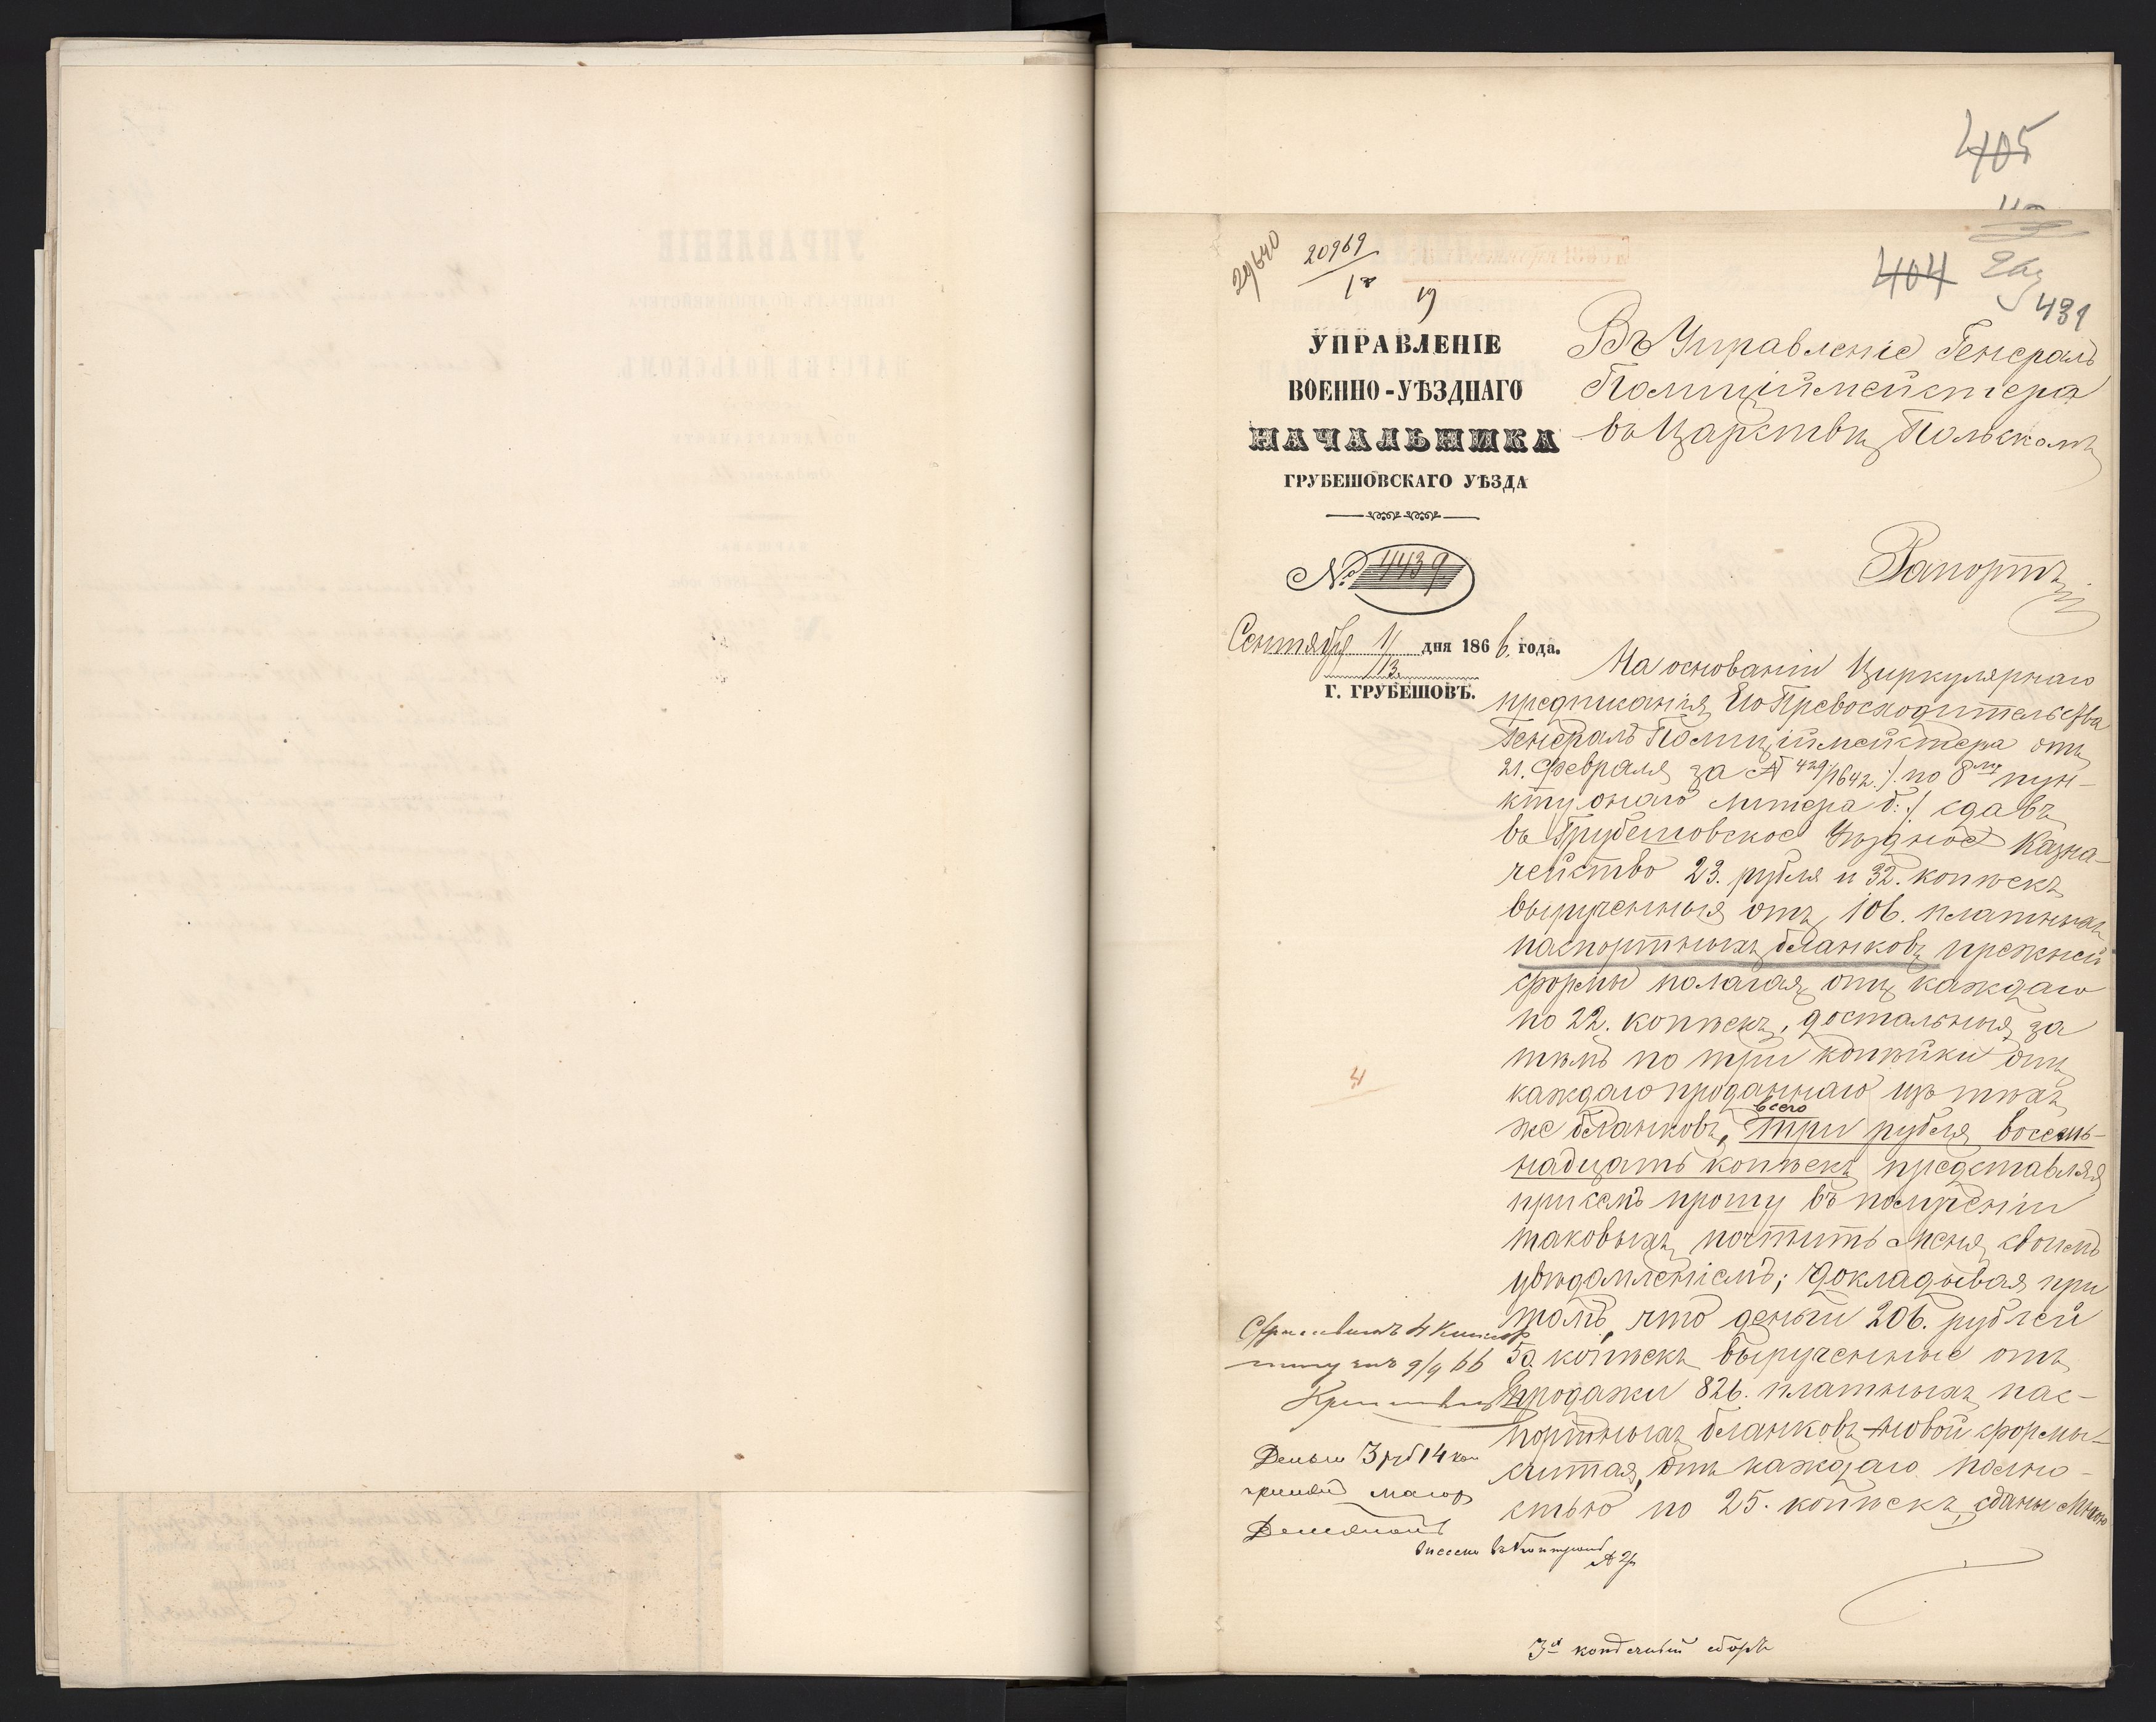 405
29640
20969
18
19
404
431
УПРАВЛЕНІЕ
ВОЕННО-УѢЗДНАГО
НАЧАЛЬНИКА
ГРУБЕШОВСКАГО УѢЗДА
№ 4439
Сентября 1/13 дня 1866 года.
Г. ГРУБЕШОВЪ.
Въ Управленіе Генералъ
Полиціймейстера
въ Царствѣ Польскомъ
Рапортъ
На основаніи Циркулярнаго
предписанія Его Превосходительства
Генералъ Полиціймейстера отъ
21. Февраля за № 429/1642 ./. по 8му пун-
кту онаго литера б: ./. сдавъ
въ Грубешовское Уѣздное Казна-
чейство 23. рубля и 32. копѣекъ
вырученныя отъ 106. платныхъ
паспортныхъ бланковъ прежней
формы полагая отъ каждаго
по 22. копѣекъ, достальныя за
тѣмъ по три копѣйки отъ
каждаго проданнаго изъ тѣхъ
же бланковъ, всего три рубля восемь-
надцать копѣекъ представляя
при семъ прошу въ полученіи
таковыхъ почтить меня своимъ
увѣдомленіемъ; докладывая при
томъ, что деньги 206. рублей
50 копѣекъ вырученные отъ
продажи 826. платныхъ пас-
портныхъ бланковъ новой формы
считая отъ каждаго полно-
стью по 25. копѣекъ сданы мною
4
9/9 66
Деньги 3 руб 14 коп
принялъ маіоръ
внесено въ Контроль
3х копѣечный сборъ